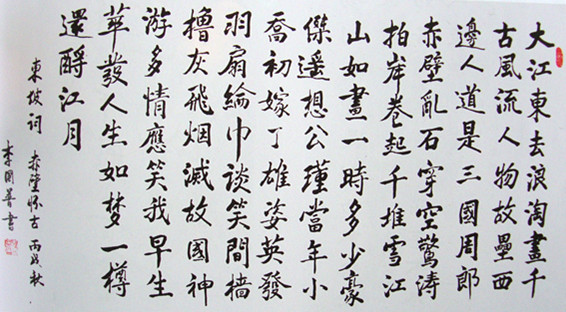 大江東去浪淘盡千
古風流人物故壘西
邊人道是三國周郎
赤壁亂石穿空驚濤
拍岸卷起千堆雪江
山如畫一時多少豪
傑遥想公瑾當年小
喬初嫁了雄姿英發
羽扇綸巾談笑間樯
櫓灰飛烟滅故國神
游多情應笑我早生
華發人生如梦一樽
還酹江月
東坡詞 赤壁怀古 丙戌秋
李國書